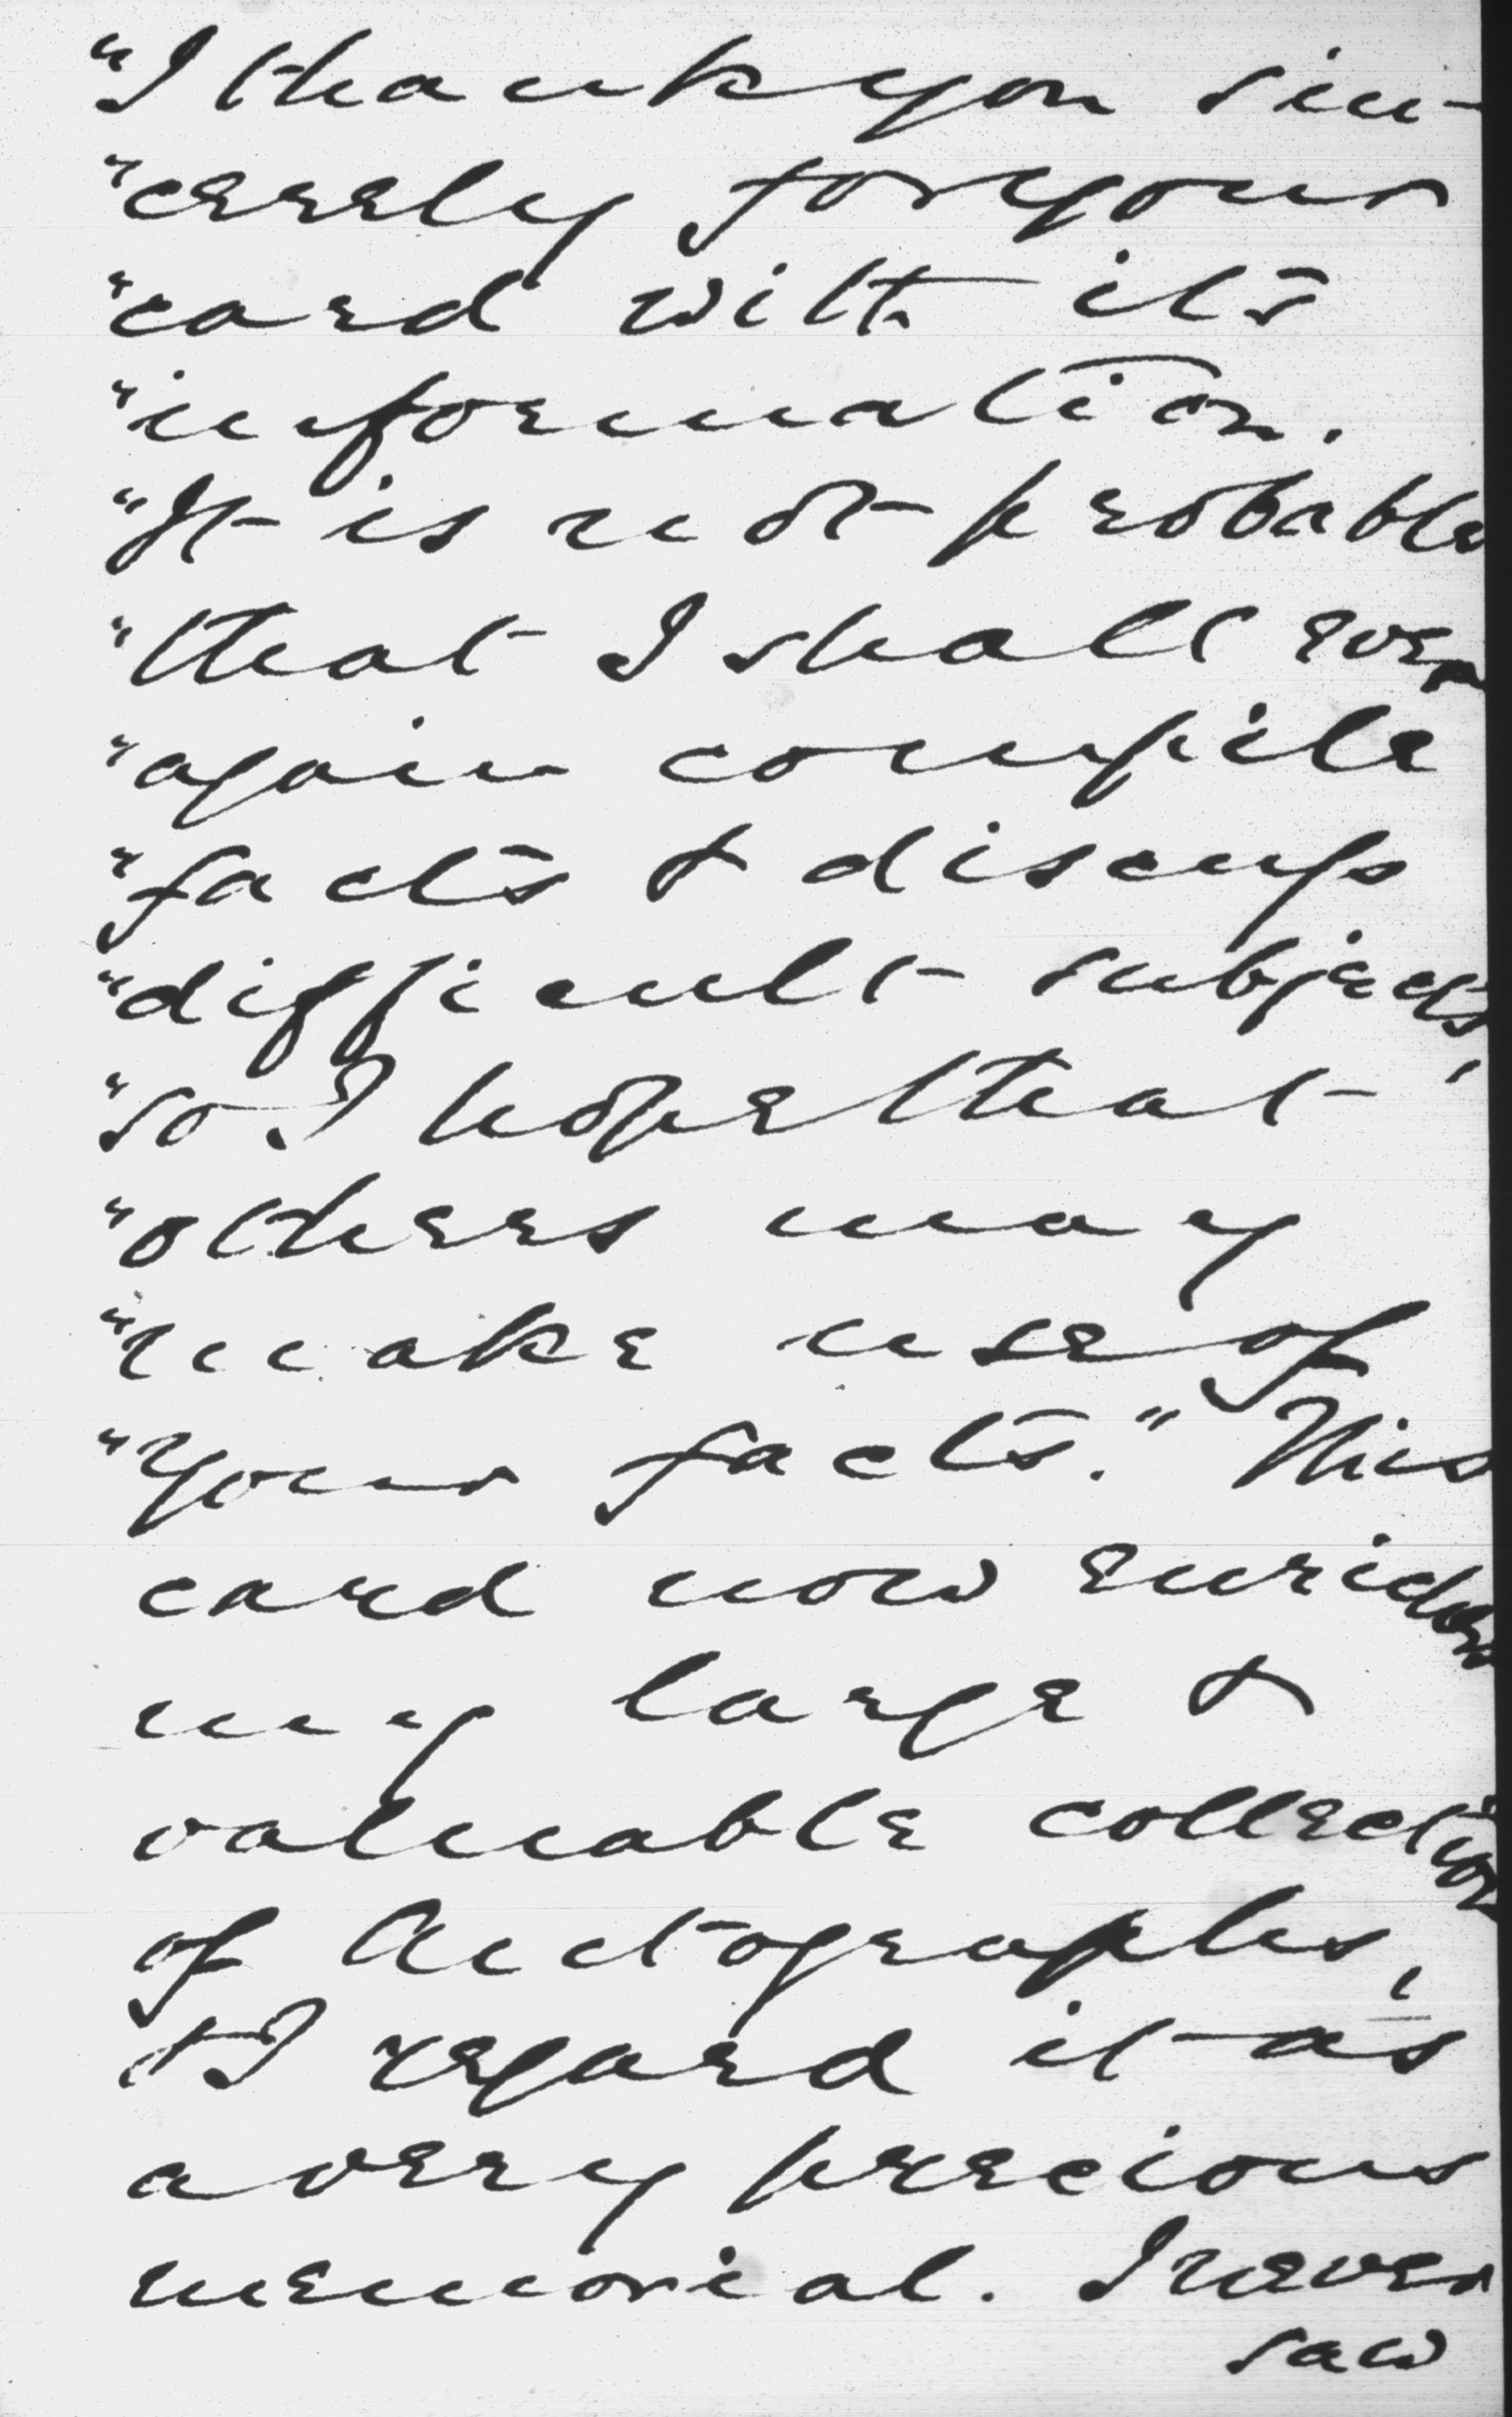 "I thank you sin-
"cerely for your
"card with its
"information.
"It is not probable
"that I shall ever
"again compile
"facts & discuss
"difficult subjects,
"so I hope that
"others may
"make use of
"your facts." This
card now enriches
my large &
valuable collection
of Autographs,
& I regard it as
a very precious
memorial. I never
saw